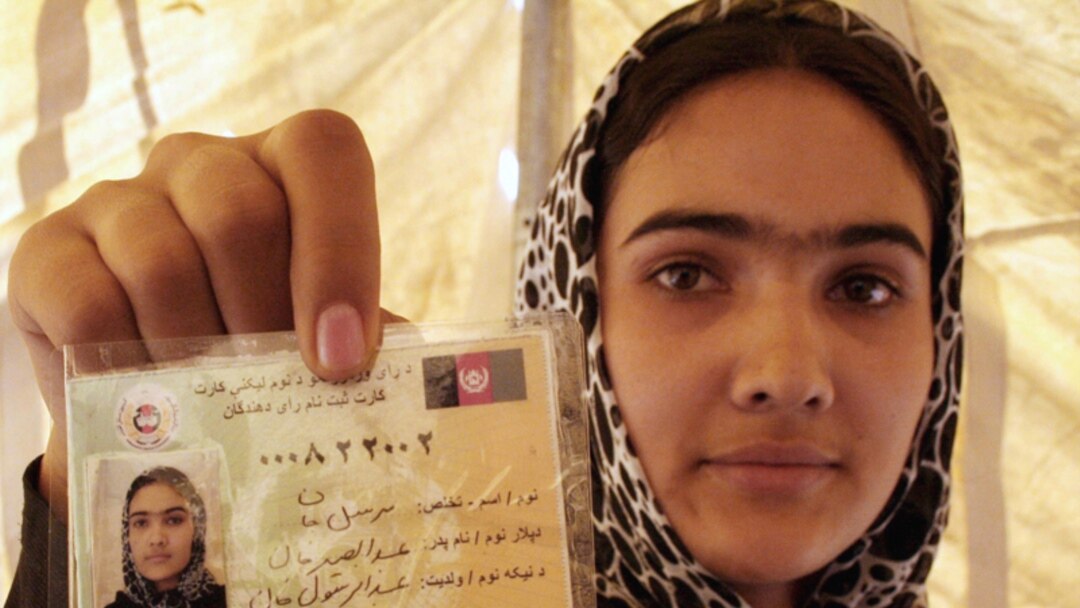 د رای د نوم لیکنې کارت
کارت ثبت نام رای دهندگان
۰۰۰۸۲۲۰۰۲
نوم / اسم - تخلص: مرسل خان
د پلار نوم / نام پدر: خان
د نیکه نوم / ولدیت: عبدالرسول خان